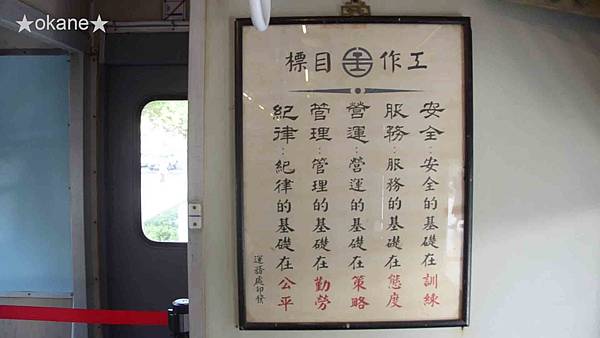 ★okane★
工作目標
安全：安全的基礎在訓練
服務：服務的基礎在態度
營運：營運的基礎在策略
管理：管理的基礎在勤勞
紀律：紀律的基礎在公平
運務處印發